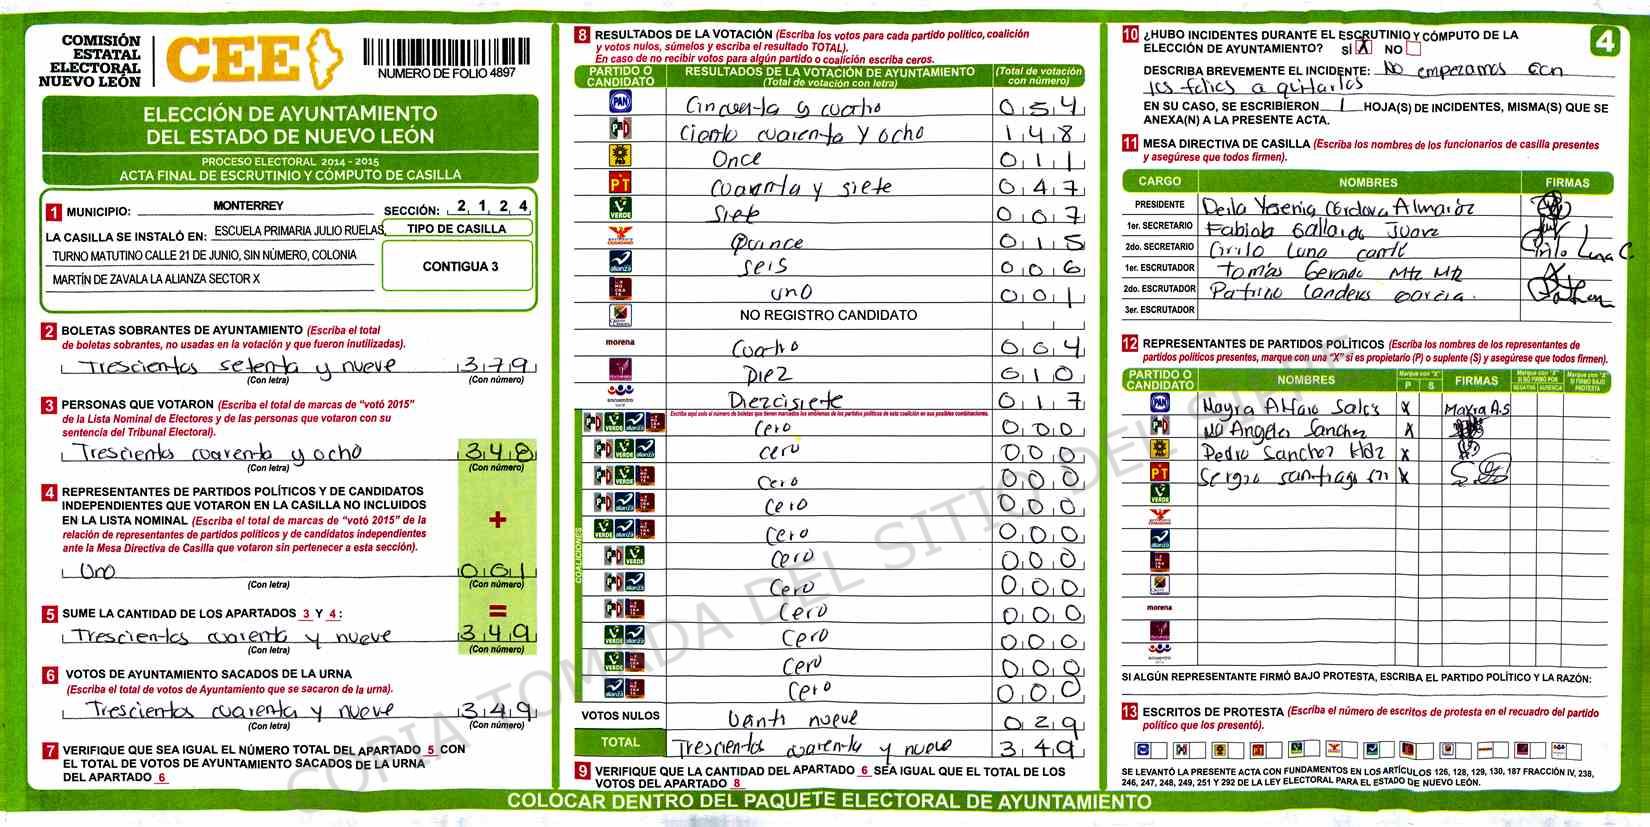 COMISIÓN
ESTATAL
ELECTORAL
NUEVO LEÓN
CEE
NUMERO DE FOLIO 4897
ELECCIÓN DE AYUNTAMIENTO
DEL ESTADO DE NUEVO LEÓN
PROCESO ELECTORAL 2014 - 2015
ACTA FINAL DE ESCRUTINIO Y CÓMPUTO DE CASILLA
1 MUNICIPIO: MONTERREY SECCIÓN: 2 1 2 4
LA CASILLA SE INSTALÓ EN: ESCUELA PRIMARIA JULIO RUELAS,
TURNO MATUTINO CALLE 21 DE JUNIO, SIN NÚMERO, COLONIA
MARTÍN DE ZAVALA LA ALIANZA SECTOR X
TIPO DE CASILLA
CONTIGUA 3
2 BOLETAS SOBRANTES DE AYUNTAMIENTO (Escriba el total
de boletas sobrantes, no usadas en la votación y que fueron inutilizadas).
Trescientos setenta y nueve 379
(Con letra) (Con número)
3 PERSONAS QUE VOTARON (Escriba el total de marcas de “votó 2015”
de la Lista Nominal de Electores y de las personas que votaron con su
sentencia del Tribunal Electoral).
Trescientos cuarenta y ocho 348
(Con letra) (Con número)
4 REPRESENTANTES DE PARTIDOS POLÍTICOS Y DE CANDIDATOS
INDEPENDIENTES QUE VOTARON EN LA CASILLA NO INCLUIDOS
EN LA LISTA NOMINAL (Escriba el total de marcas de “votó 2015” de la
relación de representantes de partidos políticos y de candidatos independientes
ante la Mesa Directiva de Casilla que votaron sin pertenecer a esta sección).
+
Uno 001
(Con letra) (Con número)
5 SUME LA CANTIDAD DE LOS APARTADOS 3 Y 4: =
Trescientos cuarenta y nueve 349
(Con letra) (Con número)
6 VOTOS DE AYUNTAMIENTO SACADOS DE LA URNA
(Escriba el total de votos de Ayuntamiento que se sacaron de la urna).
Trescientos cuarenta y nueve 349
(Con letra) (Con número)
7 VERIFIQUE QUE SEA IGUAL EL NÚMERO TOTAL DEL APARTADO 5 CON
EL TOTAL DE VOTOS DE AYUNTAMIENTO SACADOS DE LA URNA
DEL APARTADO 6
8 RESULTADOS DE LA VOTACIÓN (Escriba los votos para cada partido político, coalición
y votos nulos, súmelos y escriba el resultado TOTAL).
En caso de no recibir votos para algún partido o coalición escriba ceros.
PARTIDO O CANDIDATO RESULTADOS DE LA VOTACIÓN DE AYUNTAMIENTO (Total de votación con letra) (Total de votación con número)
PAN Cincuenta y cuatro 054
PRD Ciento cuarenta y ocho 148
PRD Once 011
PT cuarenta y siete 047
VERDE Siete 007
Quince 015
alianza seis 006
uno 001
NO REGISTRO CANDIDATO
morena cuatro 004
Diez 010
encuentro Diecisiete 017
Escriba aquí solo el número de boletas que tienen marcados los emblemas de los partidos políticos de esta coalición en sus posibles combinaciones.
COALICIONES
cero 000
cero 000
Cero 000
Cero 000
Cero 000
Cero 000
Cero 000
Cero 000
Cero 000
Cero 000
Cero 000
VOTOS NULOS Vanti nueve 029
TOTAL Trescientos cuarenta y nueve 349
9 VERIFIQUE QUE LA CANTIDAD DEL APARTADO 6 SEA IGUAL QUE EL TOTAL DE LOS
VOTOS DEL APARTADO 8
10 ¿HUBO INCIDENTES DURANTE EL ESCRUTINIO Y CÓMPUTO DE LA
ELECCIÓN DE AYUNTAMIENTO? SÍ X NO
4
DESCRIBA BREVEMENTE EL INCIDENTE: No empezamos con
los folios a quitarlos
EN SU CASO, SE ESCRIBIERON 1 HOJA(S) DE INCIDENTES, MISMA(S) QUE SE
ANEXA(N) A LA PRESENTE ACTA.
11 MESA DIRECTIVA DE CASILLA (Escriba los nombres de los funcionarios de casilla presentes
y asegúrese que todos firmen).
CARGO NOMBRES FIRMAS
PRESIDENTE Deila Yesenia Cordova
1er. SECRETARIO Fabiola Gallardo Juarez
2do. SECRETARIO Cirilo Luna Cantú Cirilo Luna C.
1er. ESCRUTADOR Tomás Gerardo Mtz Mtz
2do. ESCRUTADOR Patricio Landeros Garcia.
3er. ESCRUTADOR
12 REPRESENTANTES DE PARTIDOS POLÍTICOS (Escriba los nombres de los representantes de
partidos políticos presentes, marque con una “X” si es propietario (P) o suplente (S) y asegúrese que todos firmen).
PARTIDO O CANDIDATO NOMBRES Marque con “X” P S FIRMAS Marque con “X” SI NO FIRMÓ POR NEGATIVA AUSENCIA Marque con “X” SI FIRMÓ BAJO PROTESTA
PAN Mayra Alfaro Salas X Mayra A.S
Ma Angeles Sanchez X
Pedro Sanchez Hdz X
PT Sergio Santiago X
VERDE
alianza
morena
SI ALGÚN REPRESENTANTE FIRMÓ BAJO PROTESTA, ESCRIBA EL PARTIDO POLÍTICO Y LA RAZÓN:
13 ESCRITOS DE PROTESTA (Escriba el número de escritos de protesta en el recuadro del partido
político que los presentó).
SE LEVANTÓ LA PRESENTE ACTA CON FUNDAMENTOS EN LOS ARTÍCULOS 126, 128, 129, 130, 187 FRACCIÓN IV, 238,
246, 247, 248, 249, 251 Y 292 DE LA LEY ELECTORAL PARA EL ESTADO DE NUEVO LEÓN.
COLOCAR DENTRO DEL PAQUETE ELECTORAL DE AYUNTAMIENTO